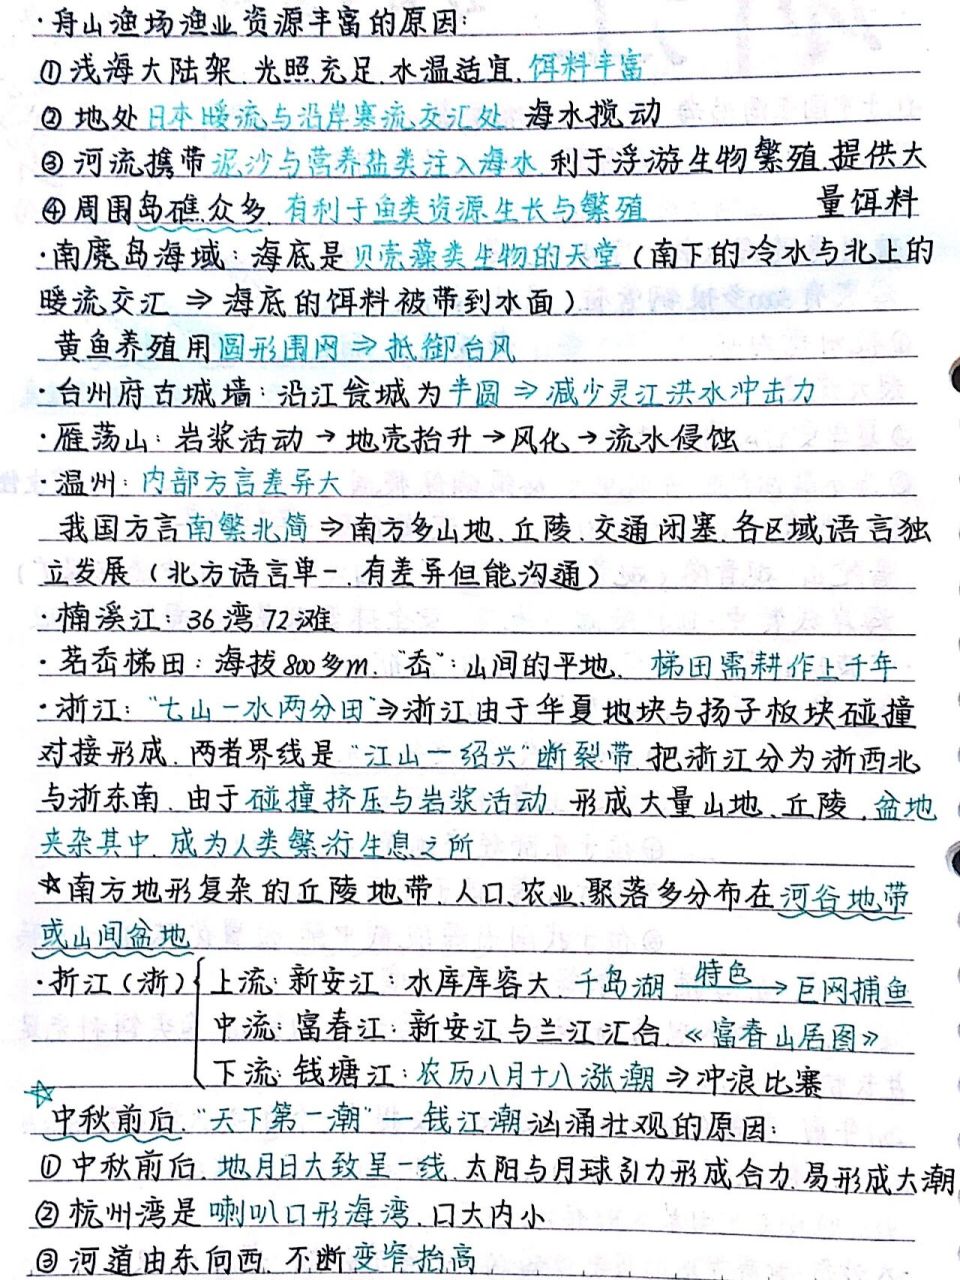 ·舟山渔场渔业资源丰富的原因:
①浅海大陆架、光照充足、水温适宜、饵料丰富
②地处日本暖流与沿岸寒流交汇处、海水搅动
③河流携带泥沙与营养盐类注入海水、利于浮游生物繁殖、提供大
量饵料
④周围岛礁众多、有利于鱼类资源生长与繁殖
·南麂岛海域:海底是贝壳藻类生物的天堂(南下的冷水与北上的
暖流交汇⇒海底的饵料被带到水面)
黄鱼养殖用圆形围网⇒抵御台风
·台州府古城墙:沿江瓮城为半圆⇒减少灵江洪水冲击力
·雁荡山:岩浆活动→地壳抬升→风化→流水侵蚀
·温州:内部方言差异大
我国方言南繁北简⇒南方多山地、丘陵、交通闭塞、各区域语言独
立发展(北方语言单一、有差异但能沟通)
·楠溪江:36湾72滩
·茗岙梯田:海拔800多m、"岙":山间的平地、梯田需耕作上千年
·浙江:"七山一水两分田"⇒浙江由于华夏地块与扬子板块碰撞
对接形成、两者界线是"江山—绍兴"断裂带、把浙江分为浙西北
与浙东南、由于碰撞挤压与岩浆活动、形成大量山地、丘陵、盆地
夹杂其中、成为人类繁衍生息之所
☆南方地形复杂的丘陵地带、人口、农业、聚落多分布在河谷地带
或山间盆地
·折江(浙){上流:新安江:水库库容大、千岛湖 特色→巨网捕鱼
中流:富春江:新安江与兰江汇合、《富春山居图》
下流:钱塘江:农历八月十八涨潮⇒冲浪比赛
☆中秋前后、"天下第一潮"—钱江潮汹涌壮观的原因:
①中秋前后、地月日大致呈一线、太阳与月球引力形成合力、易形成大潮
②杭州湾是喇叭口形海湾、口大内小
③河道由东向西、不断变窄抬高